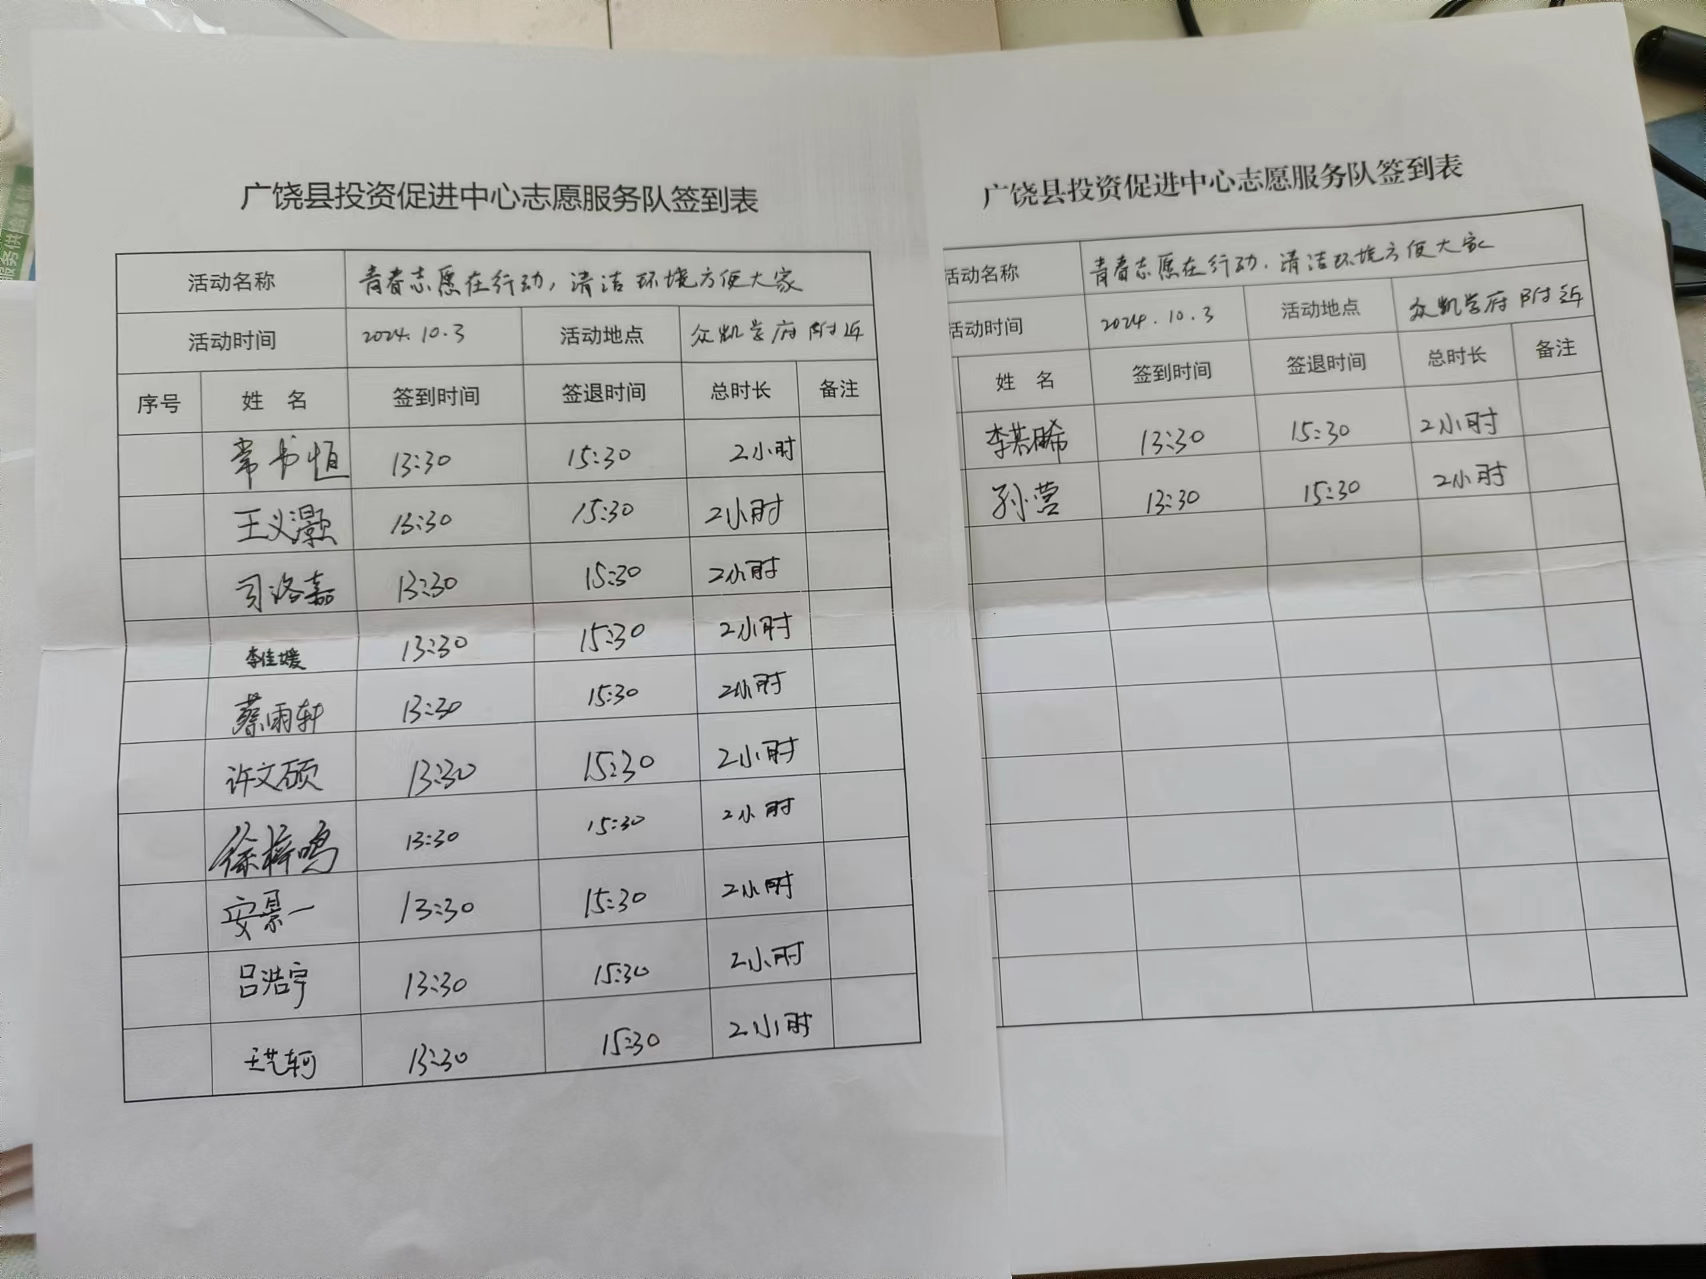 广饶县投资促进中心志愿服务队签到表
活动名称 青春志愿在行动，清洁环境方便大家
活动时间 2024.10.3 活动地点 众凯学府附近
序号 姓 名 签到时间 签退时间 总时长 备注
常书恒 13:30 15:30 2小时
王义灏 13:30 15:30 2小时
司洛嘉 13:30 15:30 2小时
李佳媛 13:30 15:30 2小时
蔡雨轩 13:30 15:30 2小时
许文硕 13:30 15:30 2小时
徐梓鸣 13:30 15:30 2小时
安景一 13:30 15:30 2小时
吕浩宇 13:30 15:30 2小时
王艺轲 13:30 15:30 2小时
广饶县投资促进中心志愿服务队签到表
活动名称 青春志愿在行动，清洁环境方便大家
活动时间 2024.10.3 活动地点 众凯学府附近
姓 名 签到时间 签退时间 总时长 备注
李若晞 13:30 15:30 2小时
孙营 13:30 15:30 2小时